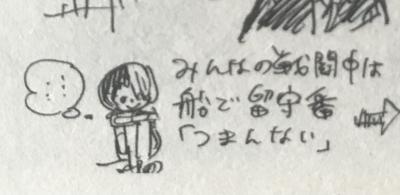 みんなの戦闘中は
船で留守番
「つまんない」